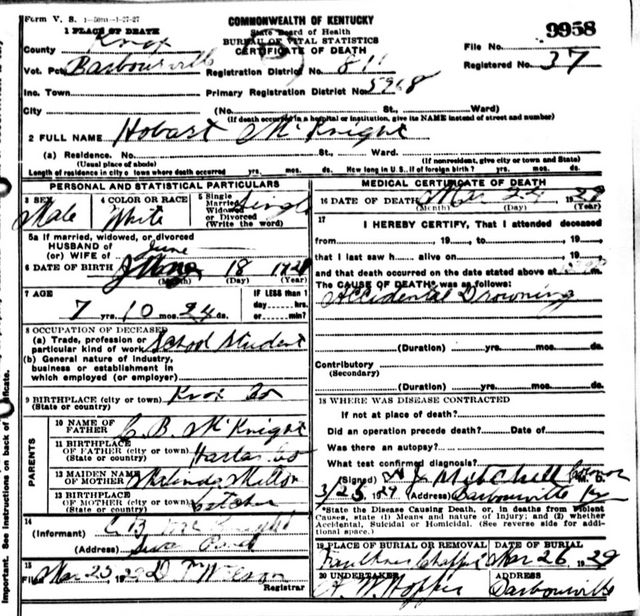 Form V. S. 1-50m-1-27-27
COMMONWEALTH OF KENTUCKY
State Board of Health
BUREAU OF VITAL STATISTICS
CERTIFICATE OF DEATH
9958
1 PLACE OF DEATH
County Knox
File No.
Vot. Pct. Barbourville
Registration District No. 811
Registered No. 37
Inc. Town
Primary Registration District No. 5968
City (No. St., Ward)
(If death occurred in a hospital or institution, give its NAME instead of street and number)
2 FULL NAME Hobart McKnight
(a) Residence. No. St., Ward.
(Usual place of abode) (If nonresident, give city or town and State)
Length of residence in city or town where death occurred yrs. mos. ds. How long in U.S., if of foreign birth? yrs. mos. ds.
PERSONAL AND STATISTICAL PARTICULARS
3 SEX Male
4 COLOR OR RACE White
5 Single Married Widowed or Divorced (Write the word) Single
5a If married, widowed, or divorced
HUSBAND of
(or) WIFE of
6 DATE OF BIRTH June 18
(Month) (Day) (Year)
7 AGE
7 yrs. 10 mos. 24 ds.
IF LESS than 1 day hrs. or min?
8 OCCUPATION OF DECEASED
(a) Trade, profession or particular kind of work School Student
(b) General nature of industry, business or establishment in which employed (or employer)
9 BIRTHPLACE (city or town) Knox Co
(State or country)
PARENTS
10 NAME OF FATHER C. B. McKnight
11 BIRTHPLACE OF FATHER (city or town) Harlan Co
(State or country)
12 MAIDEN NAME OF MOTHER Melinda Milton
13 BIRTHPLACE OF MOTHER (city or town) Letcher
(State or country)
14
(Informant) C B McKnight
(Address)
15
Filed Mar. 25, 192
Registrar
MEDICAL CERTIFICATE OF DEATH
16 DATE OF DEATH Mar 22 1929
(Month) (Day) (Year)
17
I HEREBY CERTIFY, That I attended deceased
from , 19 , to , 19
that I last saw h alive on , 19
and that death occurred on the date stated above at m.
The CAUSE OF DEATH* was as follows:
Accidental Drowning
(Duration) yrs. mos. ds.
Contributory
(Secondary)
(Duration) yrs. mos. ds.
18 WHERE WAS DISEASE CONTRACTED
If not at place of death?
Did an operation precede death? Date of
Was there an autopsy?
What test confirmed diagnosis?
(Signed) Mitchell Coroner M. D.
3/25, 1929 (Address) Barbourville Ky
*State the Disease Causing Death, or, in deaths from Violent
Causes, state (1) Means and nature of Injury; and (2) whether
Accidental, Suicidal or Homicidal. (See reverse side for additional space.)
19 PLACE OF BURIAL OR REMOVAL DATE OF BURIAL
Faulkner Mar 26 1929
20 UNDERTAKER ADDRESS
Barbourville
Important. See instructions on back of certificate.